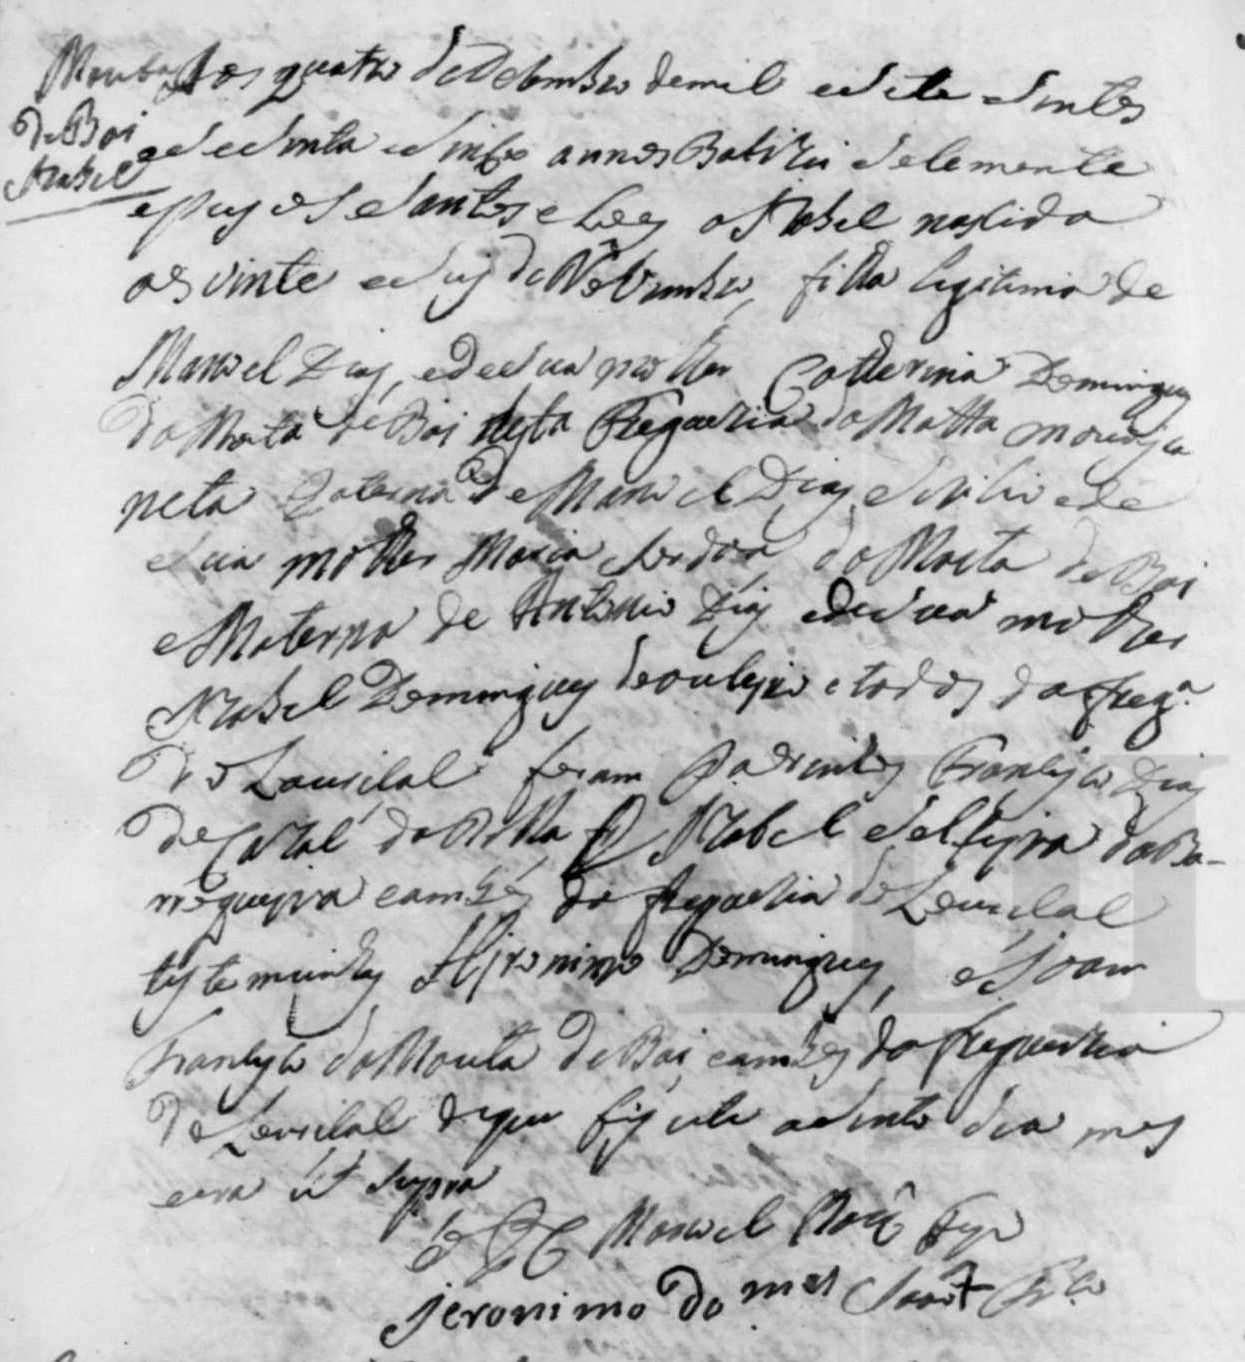 Mouta
de Boi
Izabel
Aos quatro de Dezembro de mil e sete sentos
e sesenta e sinco annos Baptizei solemnente
e pus os Santos oleos a Izabel nascida
aos vinte e seis de Novembro, filha legitima de
Manoel Dias, e de sua molher Catherina Domingues
da Mouta de Boi desta Freguezia da Matta mourisca
neta Paterna de Manoel Dias e de
sua molher Maria da Mouta de Boi
e Materna de Antonio Dias e de sua molher
Izabel Domingues e todos da freg.ª
do Lourisal foram Padrinhos Francisco Dias
do Cazal da Rolla e Izabel da Ba-
rregueira e ambos da freguezia do Lourisal
testemunhas Hjeronimo Domingues, e Joam
Francisco da Mouta de Boi, e ambos da freguezia
do Lourisal de que fis este asento dia mes
e era ut supra
Manoel
Jeronimo do.mes